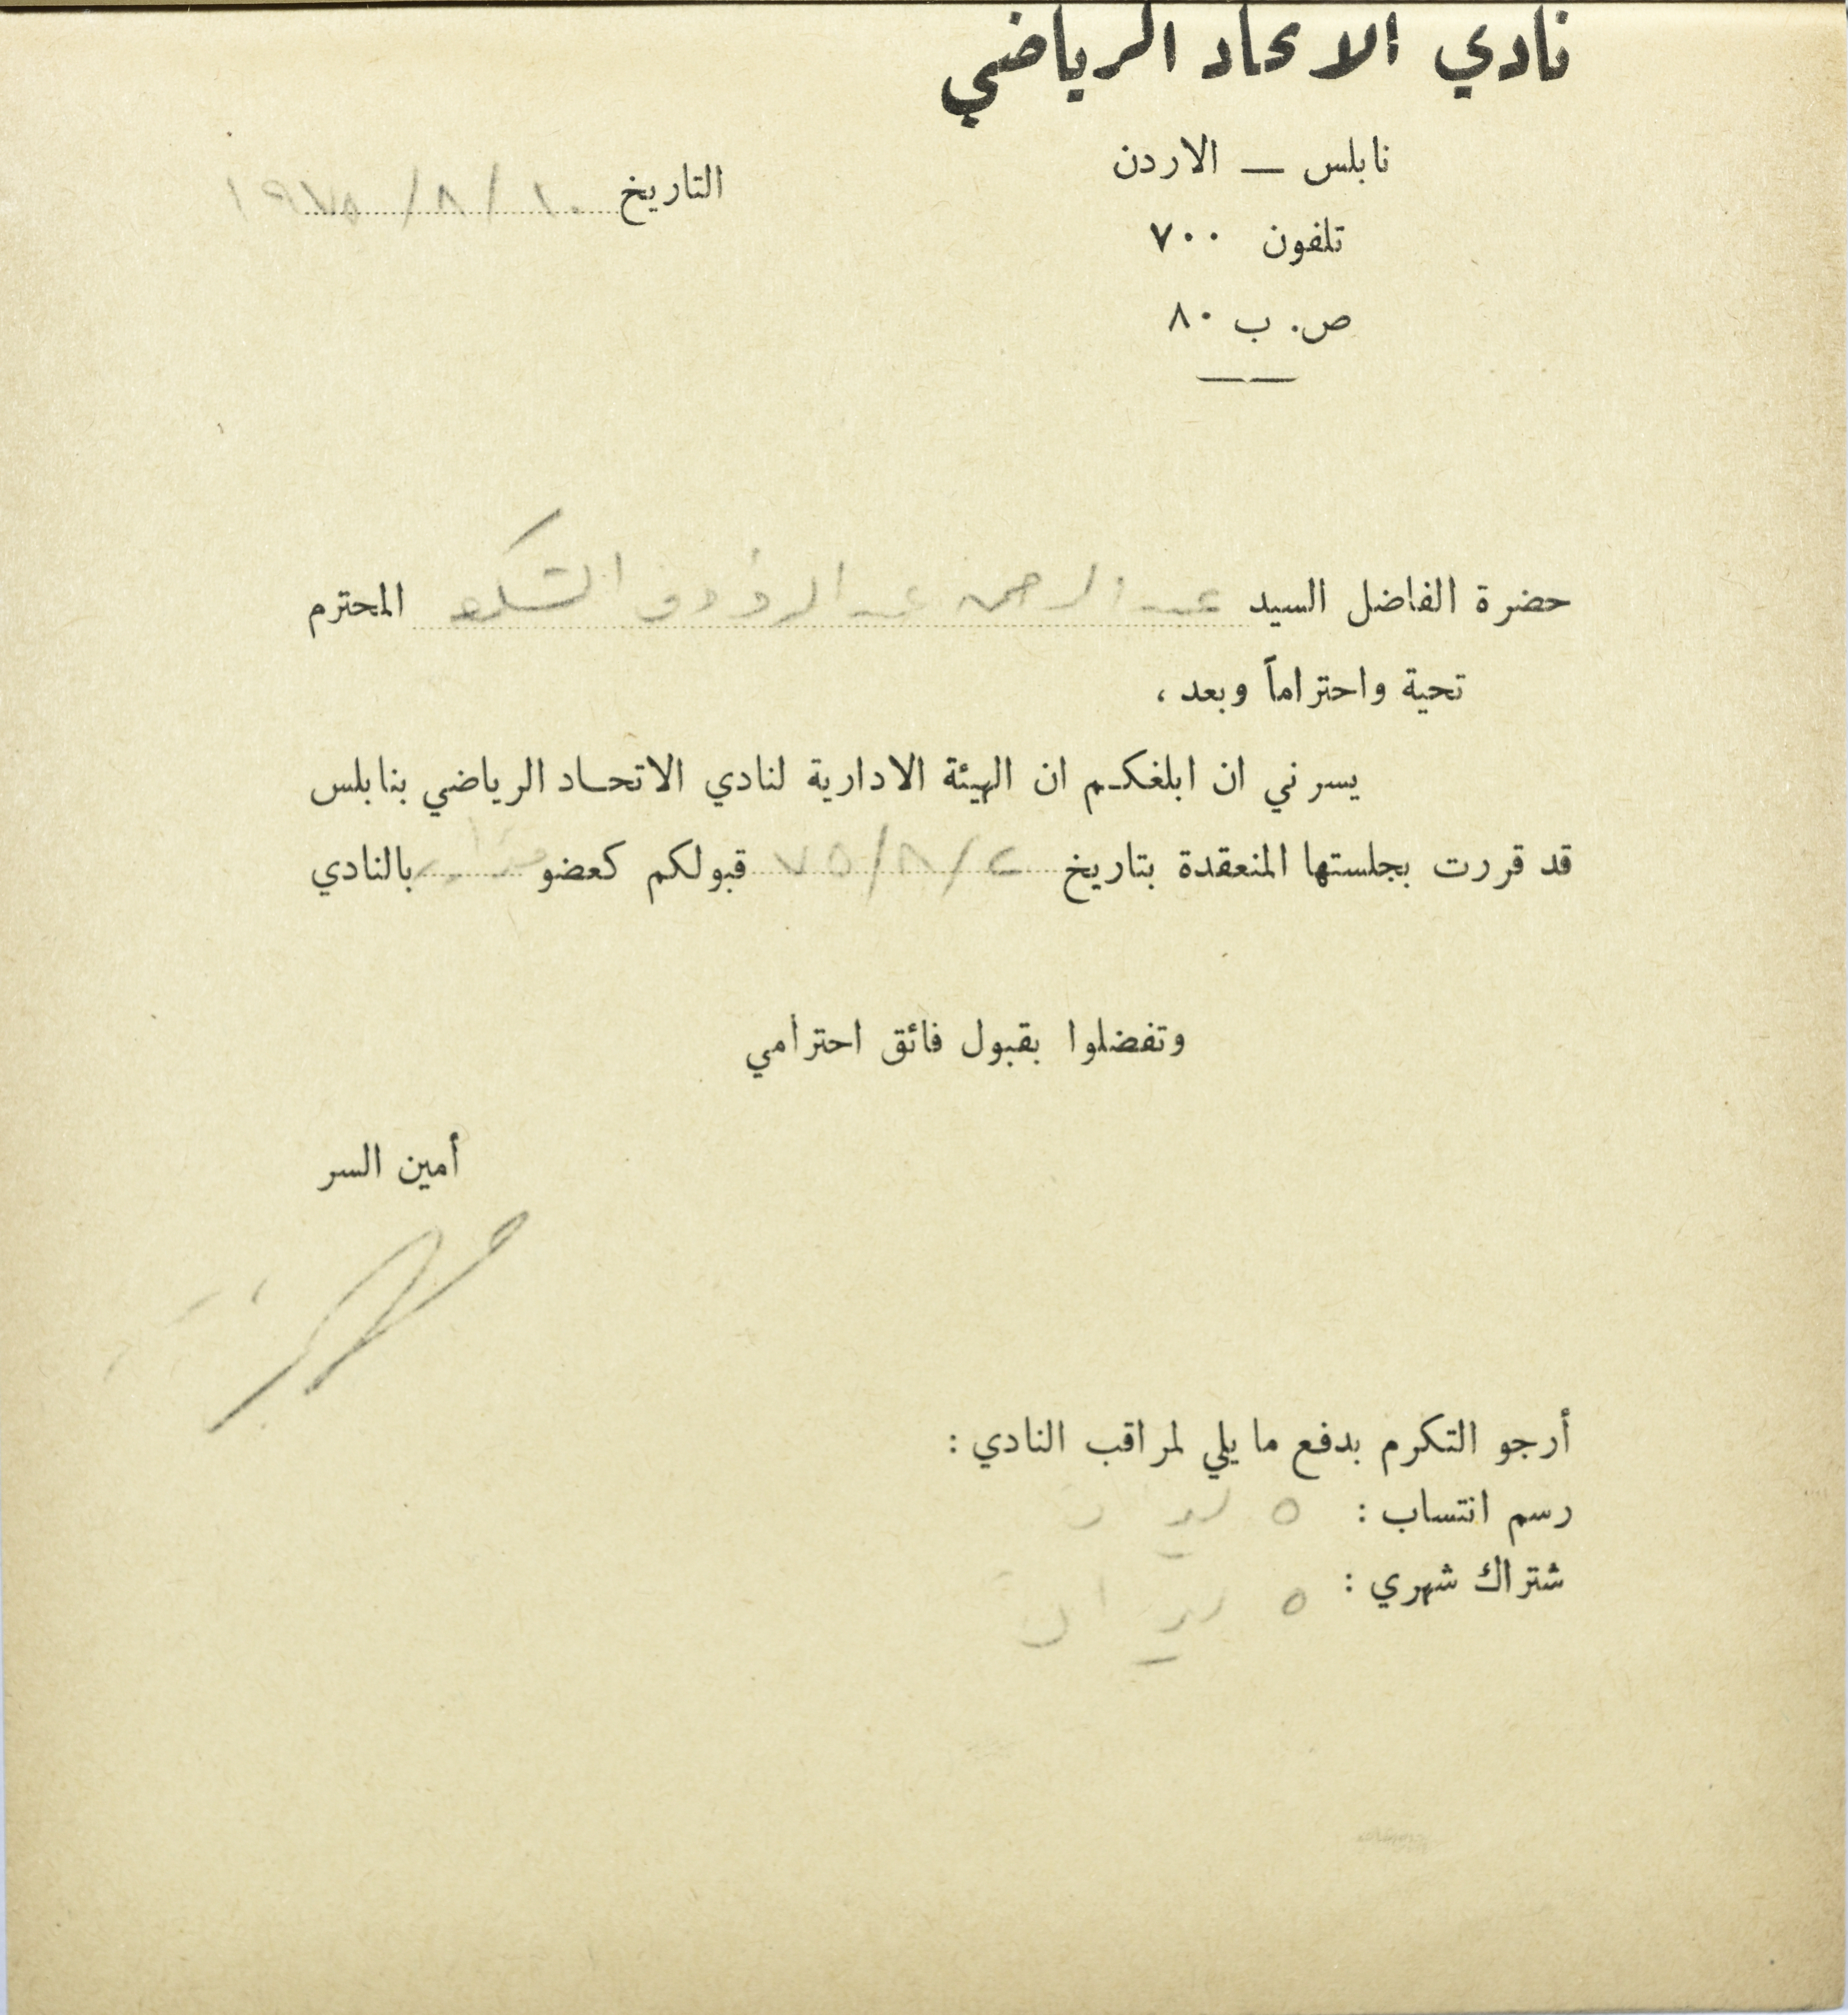 نادي الاتحاد الرياضي
نابلس — الاردن
تلفون ٧٠٠
ص. ب ٨٠
التاريخ ١٠ / ٨ / ١٩٧٥
حضرة الفاضل السيد عبد الرحمن عبد الرؤوف المحترم
تحية واحتراماً وبعد ،
يسرني ان ابلغكم ان الهيئة الادارية لنادي الاتحاد الرياضي بنابلس
قد قررت بجلستها المنعقدة بتاريخ ٢ / ٨ / ٧٥ قبولكم كعضو بالنادي
وتفضلوا بقبول فائق احترامي
أمين السر
أرجو التكرم بدفع ما يلي لمراقب النادي :
رسم انتساب : ٥ ليرات
شتراك شهري : ٥ ليرات